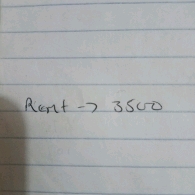 Rent -> 3500